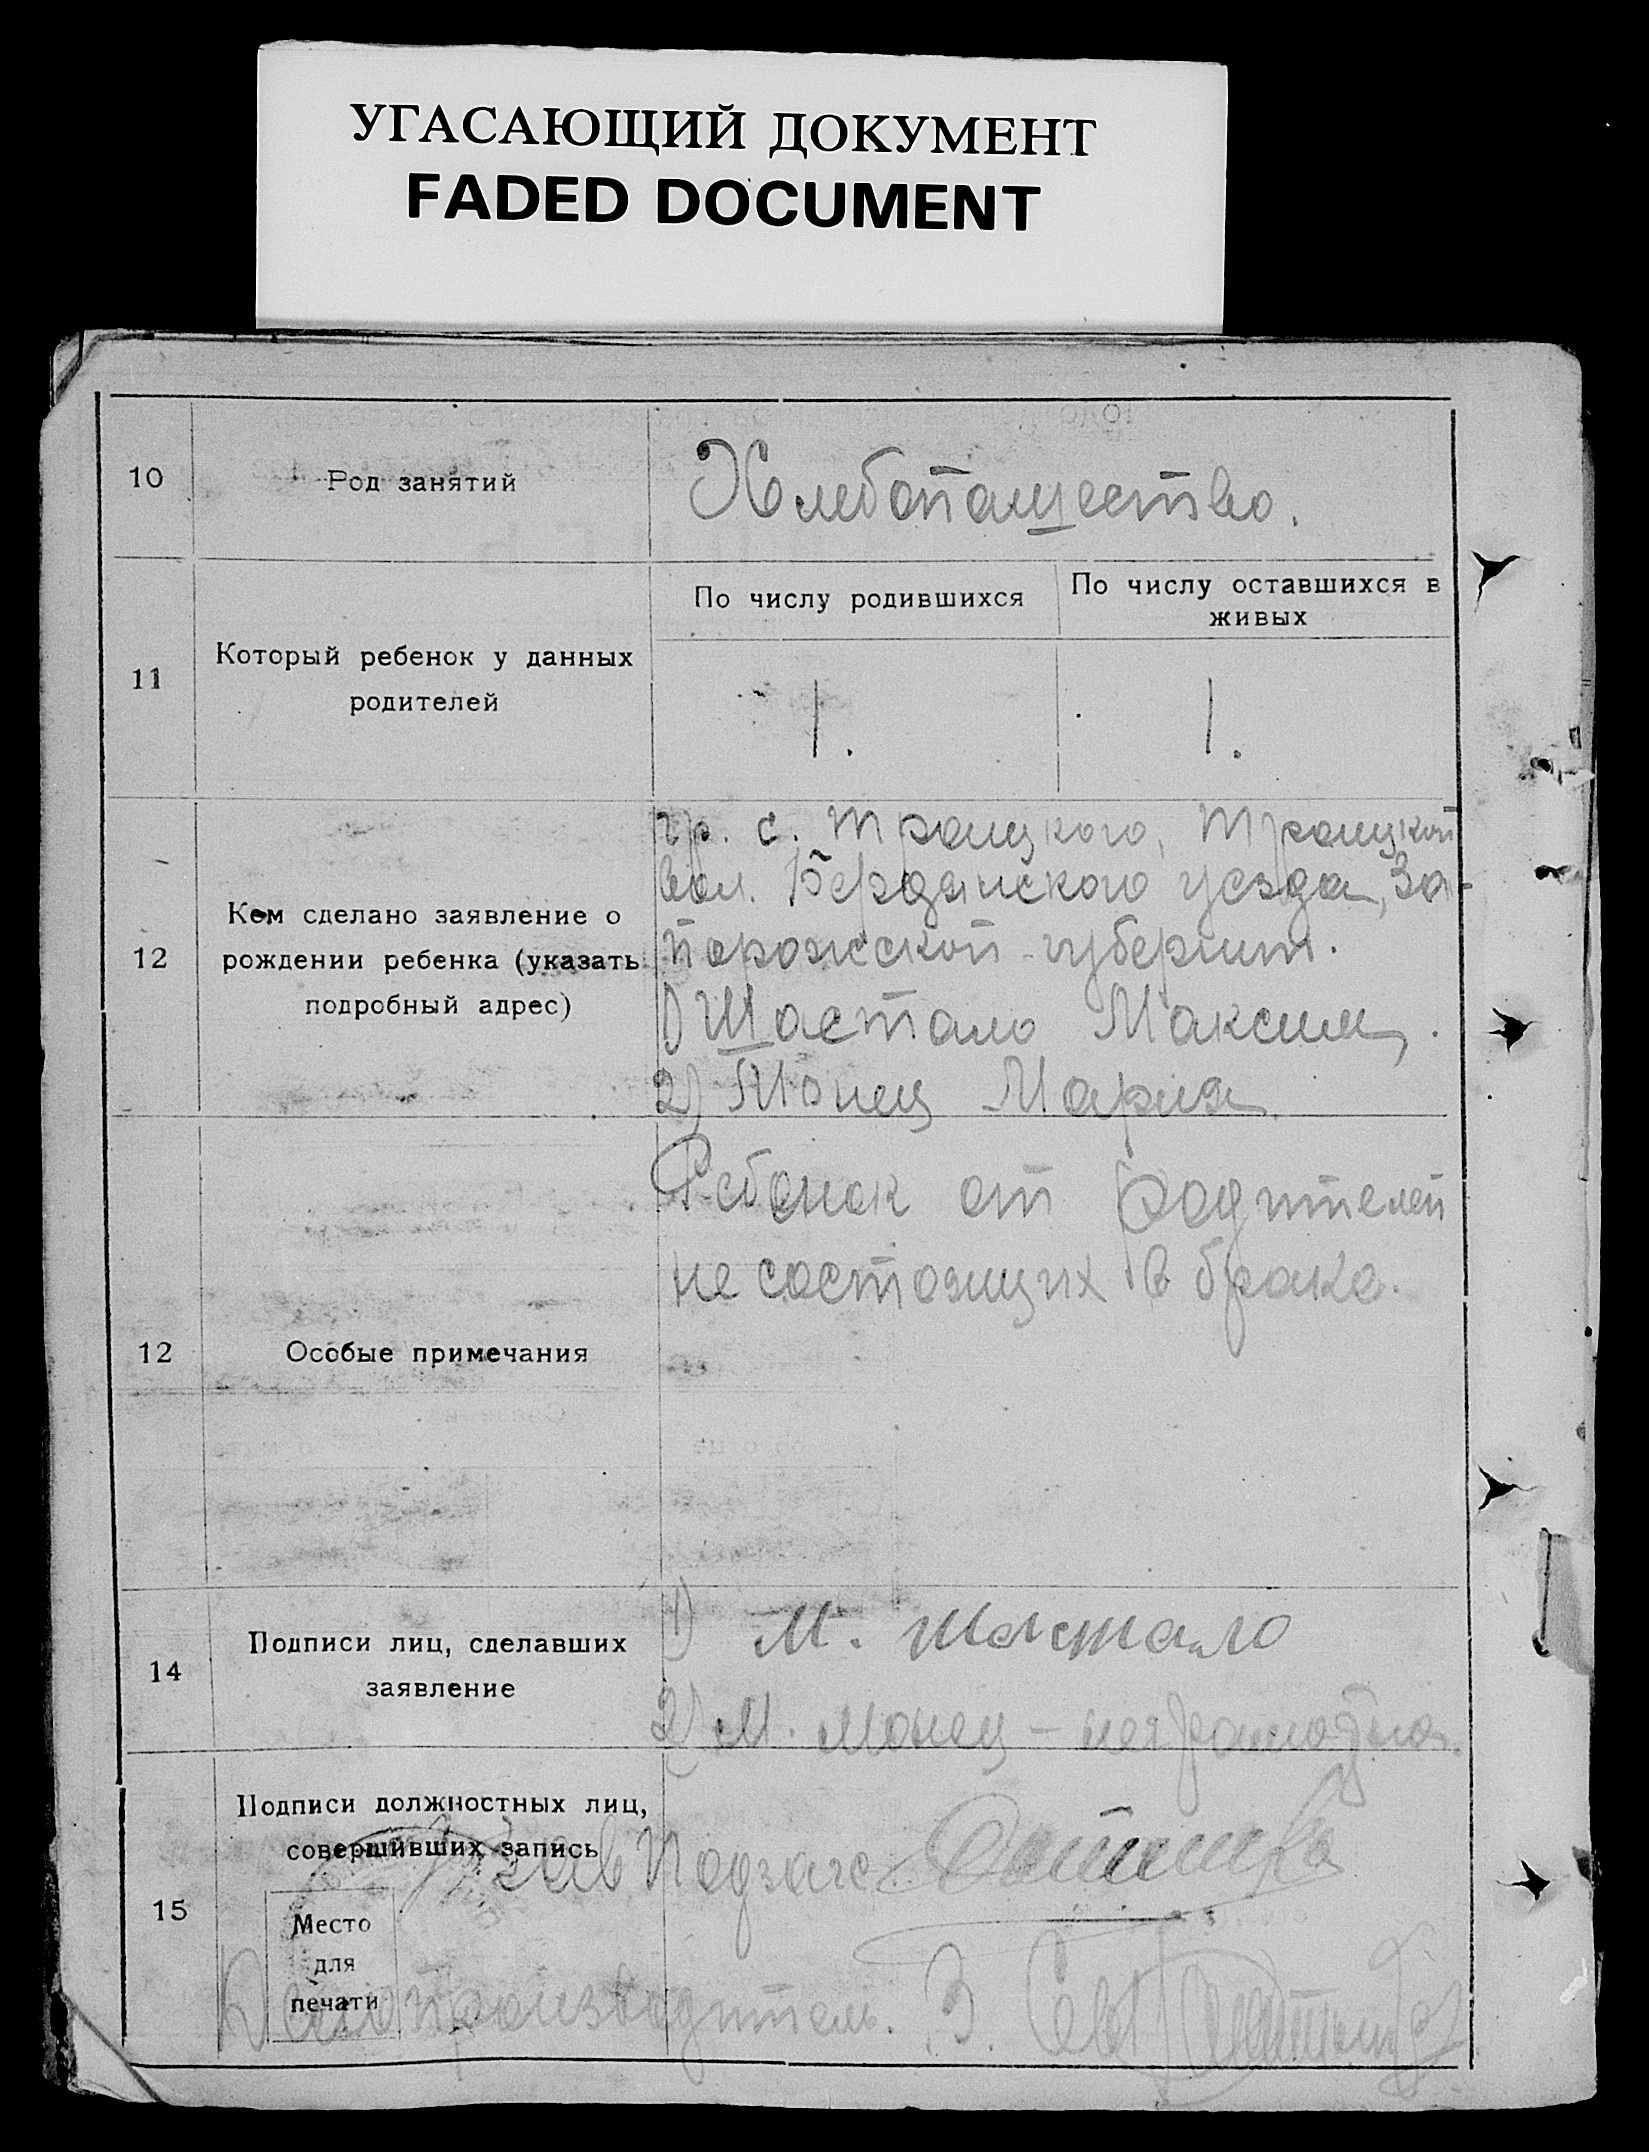 УГАСАЮЩИЙ ДОКУМЕНТ
FADED DOCUMENT
10
Род занятий
Хлебопашество.
11
Который ребенок у данных
родителей
По числу родившихся
По числу оставшихся в
живых
1.
1.
12
Кем сделано заявление о
рождении ребенка (указать
подробный адрес)
гр. с. Троицкого, Троицкой
вол. Бердянского уезда, За-
порожской губернии.
1) Шастало Максим,
2) Монец Мария
12
Особые примечания
Ребенок от родителей
не состоящих в браке.
14
Подписи лиц, сделавших
заявление
1) М. Шастало
2) М. Монец – неграмотна.
15
Подписи должностных лиц,
совершивших запись
Зав Подзагс
Место
для
печати
Делопроизводитель. З.